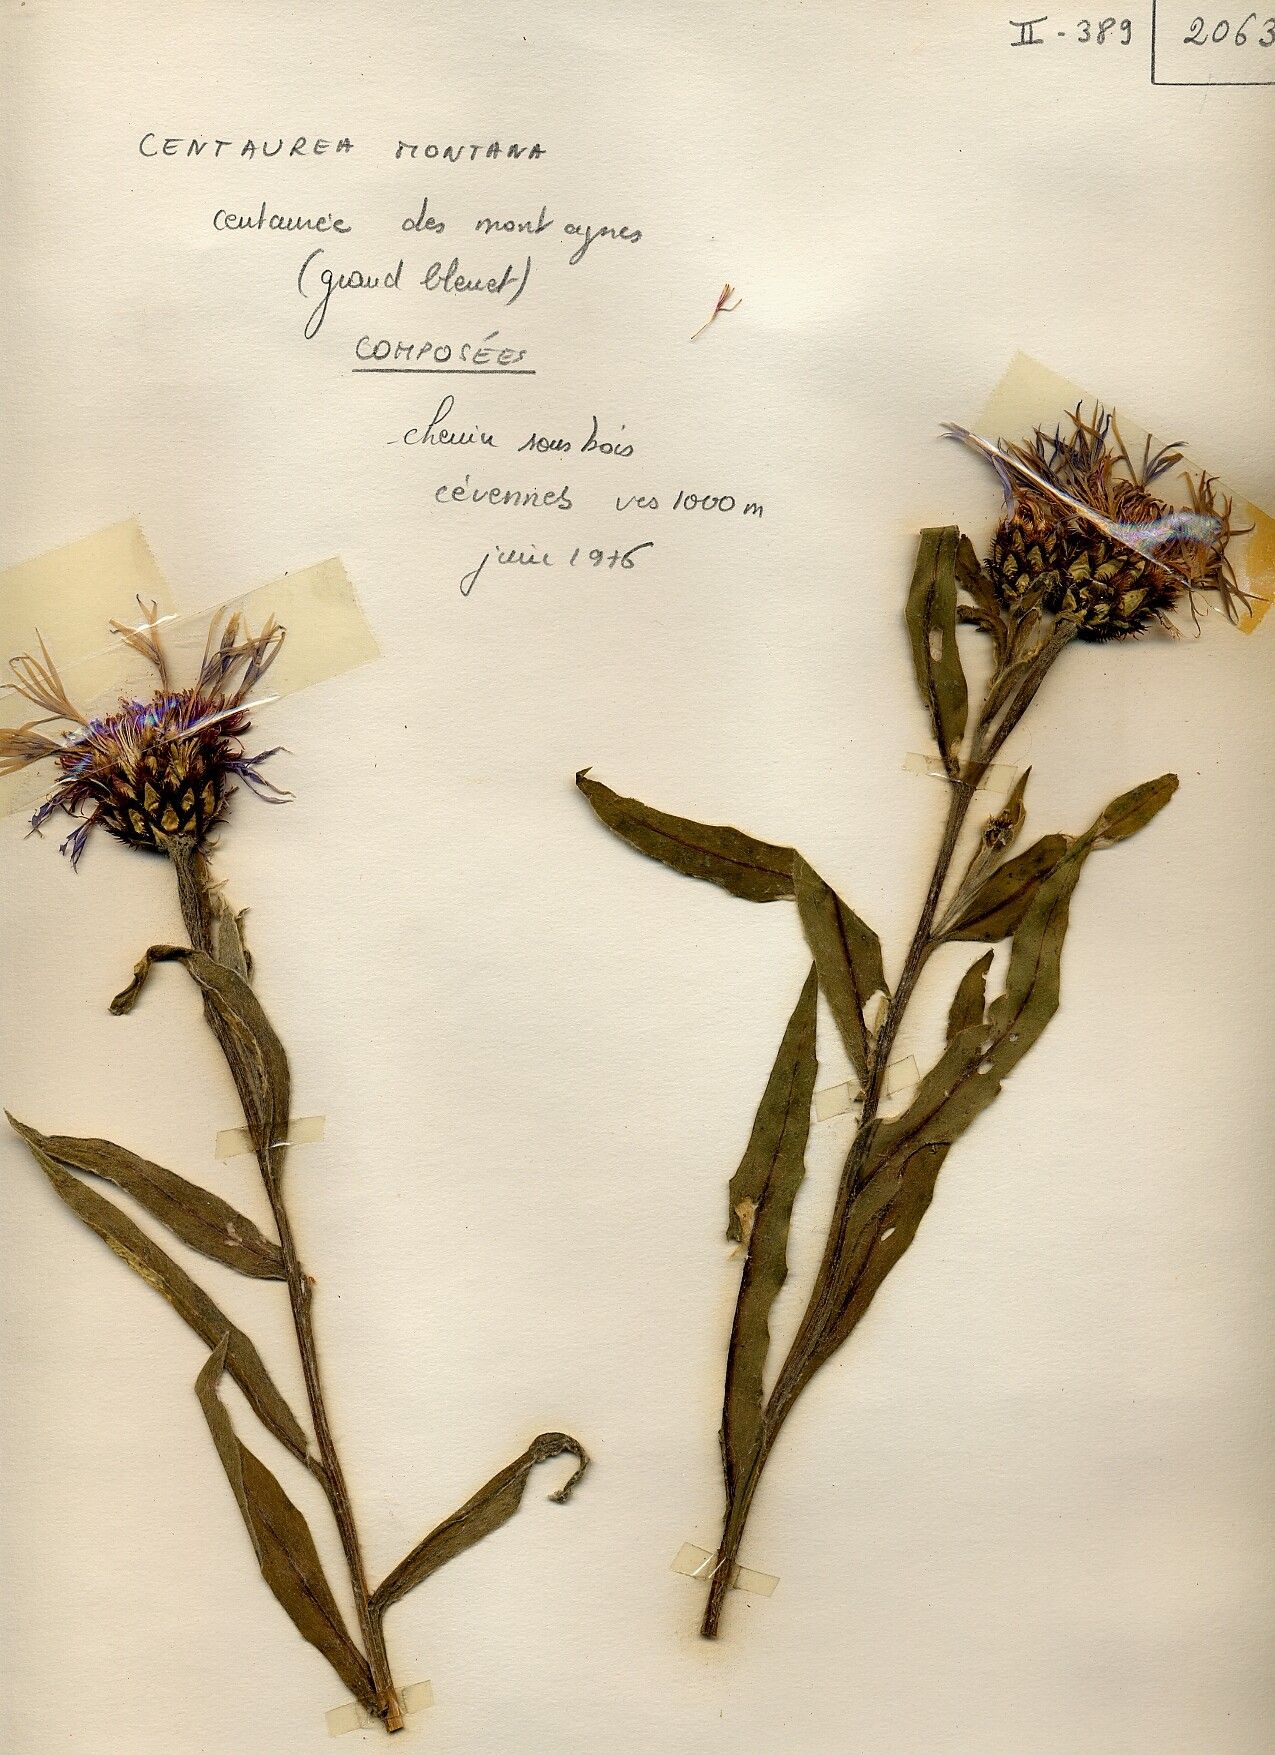 II-389 2063
CENTAUREA MONTANA
centaurée des montagnes
(grand bleuet)
COMPOSÉES
chemin sous bois
cévennes vers 1000m
juin 1976